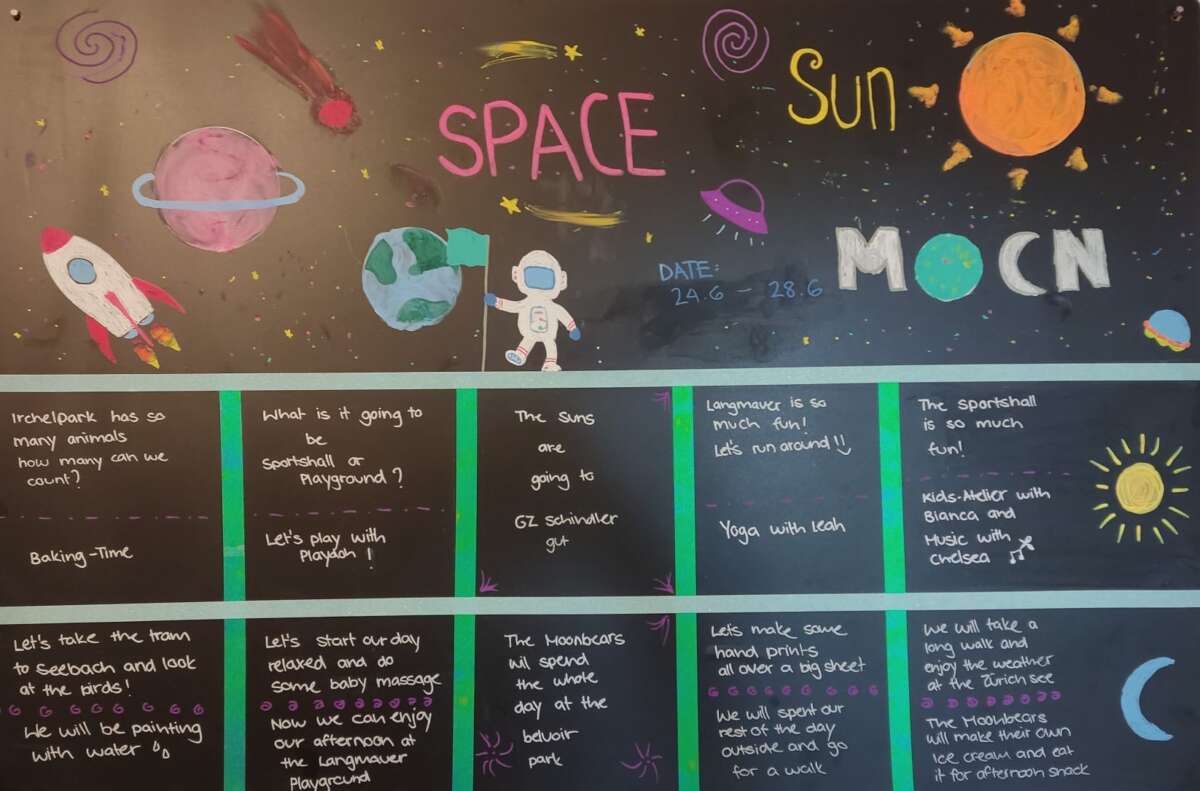 SPACE
Sun
MOON
DATE:
24.6 - 28.6
Irchelpark has so
many animals
how many can we
count?
Baking-Time
What is it going to
be
Sportshall or
Playground?
Let's play with
Playdoh!
The Suns
are
going to
GZ Schindler
gut
Langmauer is so
much fun!
Let's run around!!
Yoga with Leah
The Sportshall
is so much
fun!
Kids-Atelier with
Bianca and
Music with
Chelsea
Let's take the tram
to Seebach and look
at the birds!
We will be painting
with water
Let's start our day
relaxed and do
some baby massage
Now we can enjoy
our afternoon at
the Langmauer
Playground
The Moonbears
will spend
the whole
day at the
belvoir
park
Let's make some
hand prints
all over a big sheet
We will spent our
rest of the day
outside and go
for a walk
We will take a
long walk and
enjoy the weather
at the Zürich see
The Moonbears
will make their own
Ice cream and eat
it for afternoon snack